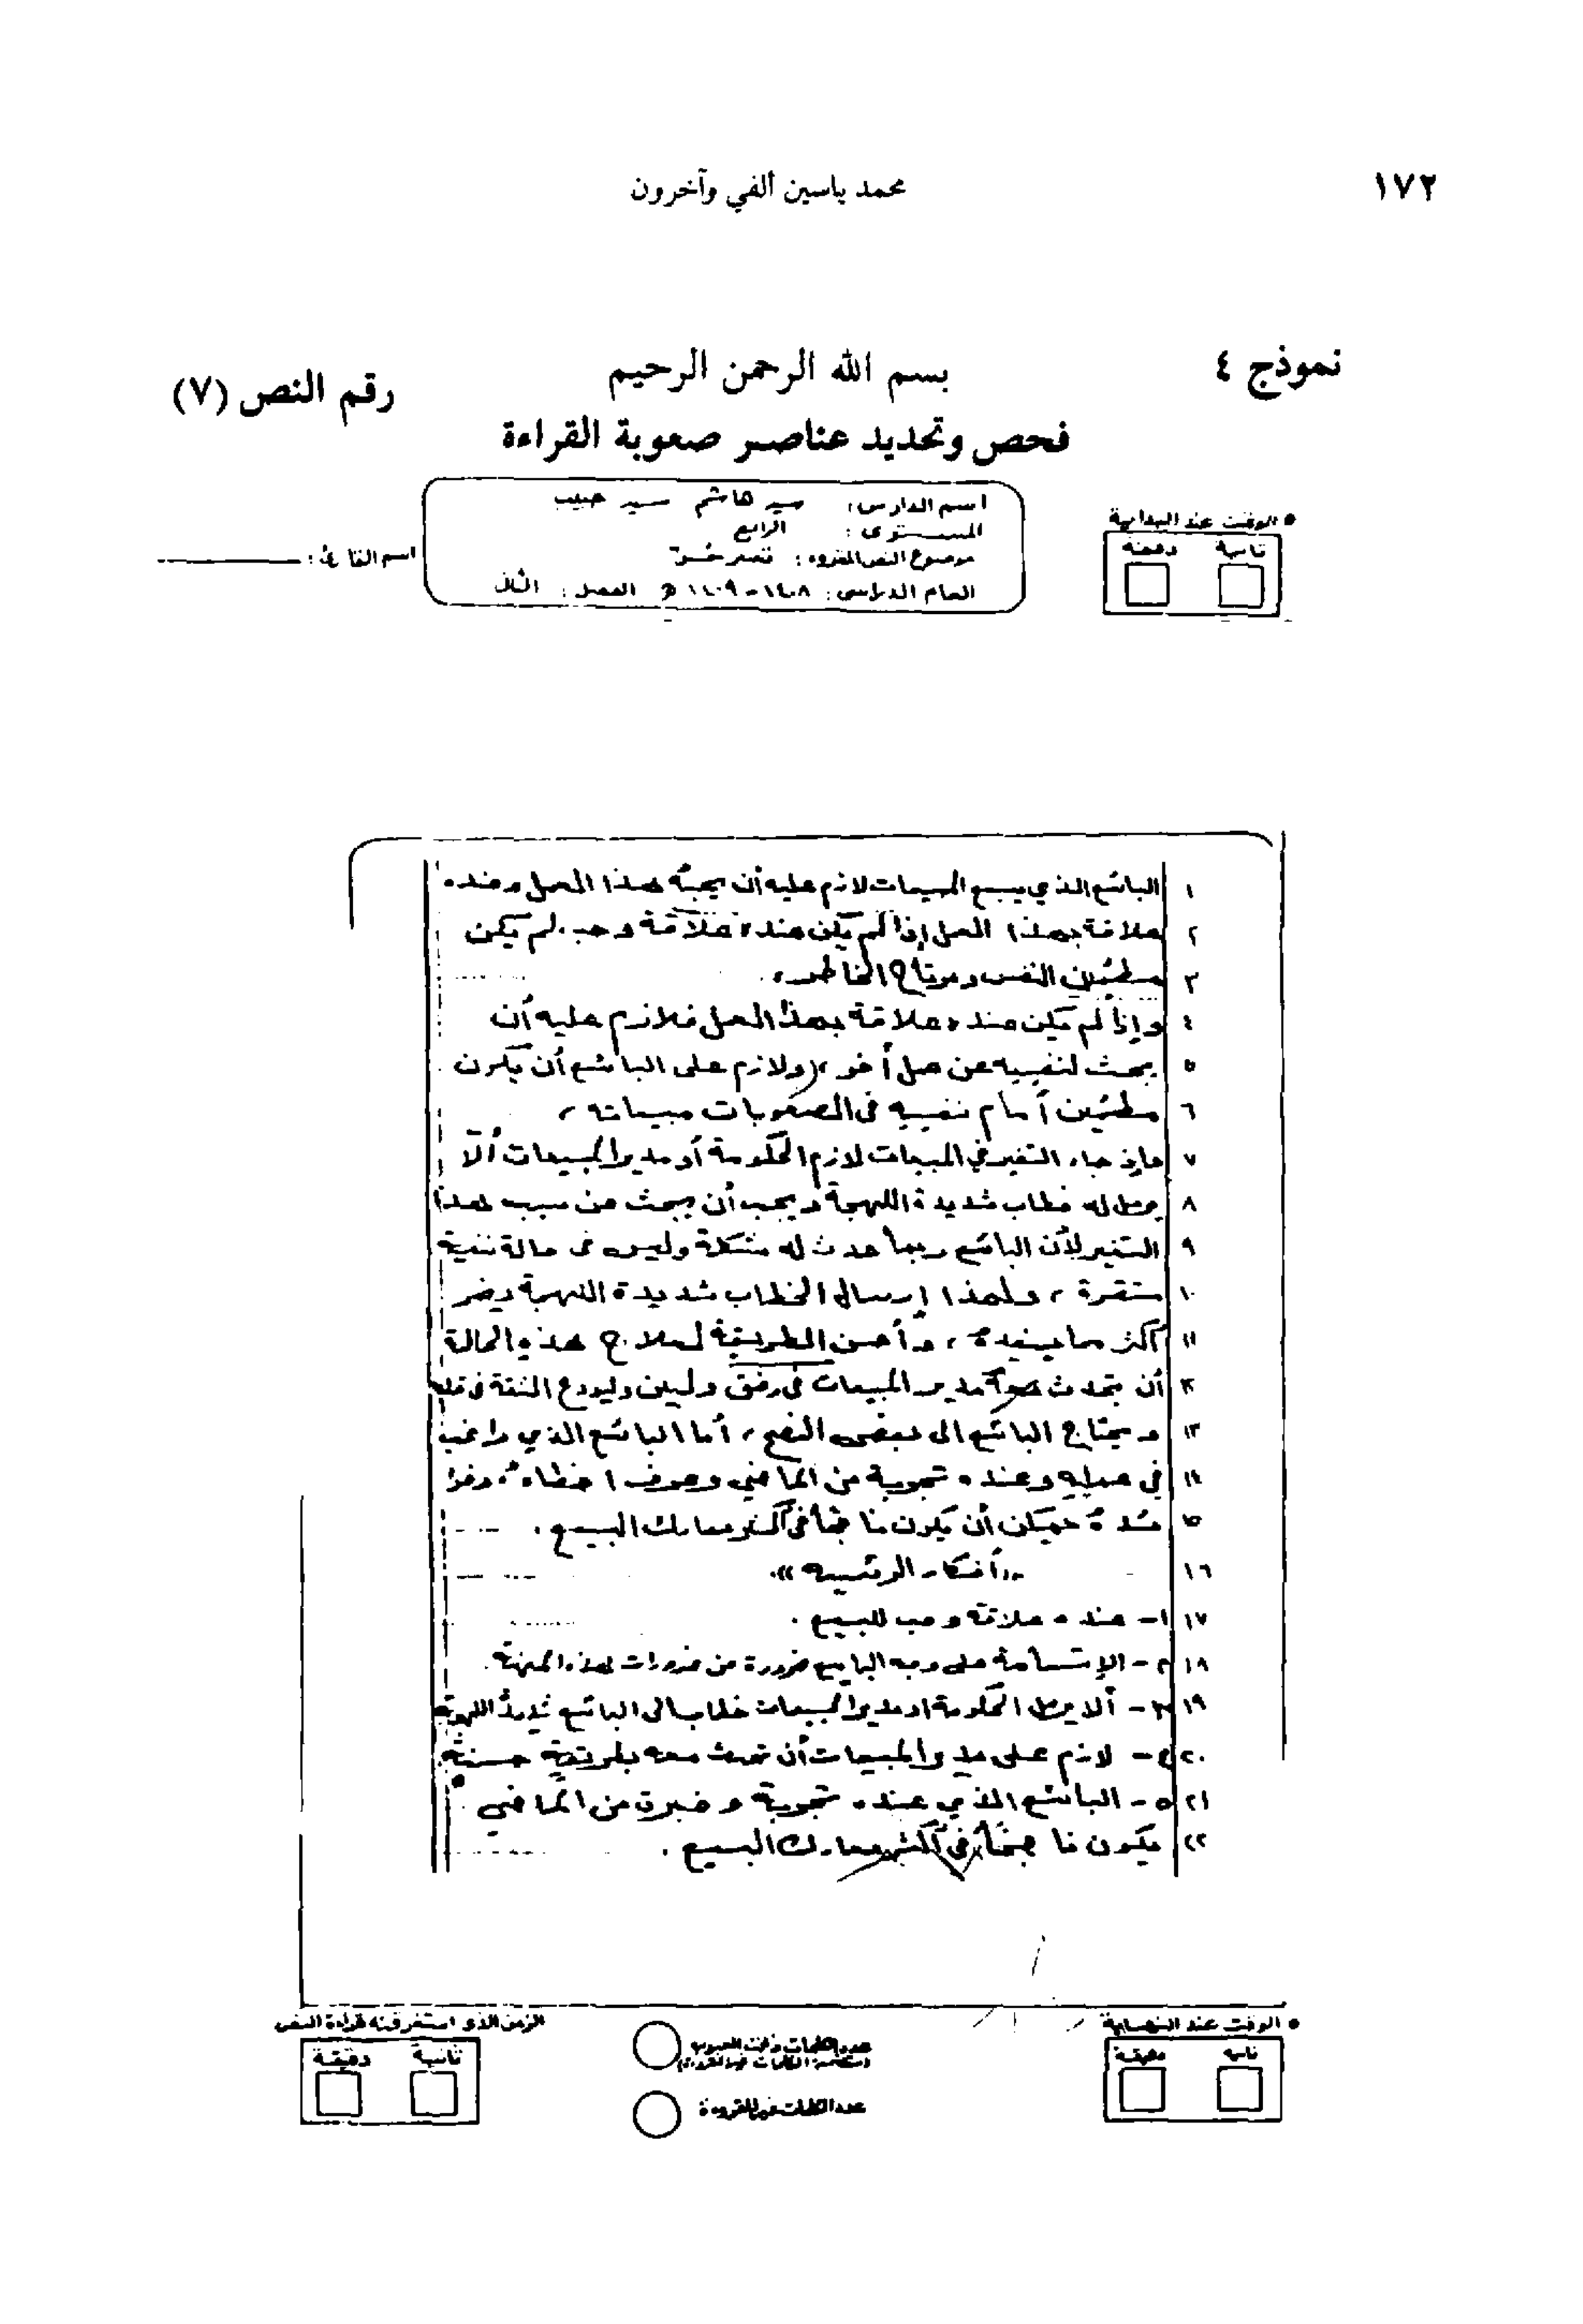 ١٧٢
محمد ياسين ألفي وآخرون
نموذج ٤
بسم الله الرحمن الرحيم
رقم النص (٧)
فحص وتحديد عناصر صعوبة القراءة
اسم الدارس: سيد هاشم سيد حبيب
المستوى: الرابع
موضوع النص المقروء:
العام الدراسي: ١٤٠٨-١٤٠٩ هـ الفصل: الثاني
اسم القارئ:
• الوقت عند البداية
ثانية دقيقة
١ البائع الذي يبيع المبيعات لازم عليه أن يحبه هذا العمل وعنده
٢ علاقة بهذا العمل إذا لم يكن عنده علاقة وحب. لم يكن
٣ مطمئن النفس ومرتاح الخاطر.
٤ وإذا لم يكن عنده علاقة بهذا العمل فلازم عليه أن
٥ يبحث لنفسه عن عمل أخر، (ولازم على البائع أن يكون
٦ مطمئن أمام نفسه في الصعوبات مبيعاته،
٧ فإذ جاء التغير في المبيعات لازم الحكومة أو مدير المبيعات ألّا
٨ يرسل له خطاب شديدة اللهجة ويجب أن يبحث عن سبب هذا
٩ التغير لأن البائع ربما حدث له مشكلة وليس في حالة نفسية
١٠ مستقرة، ولهذا إرسال الخطاب شديدة اللهجة يضر
١١ أكثر مما يفيده، وأحسن الطريقة لعلاج هذه الحالة
١٢ أن يتحدث مدير المبيعات في رفق ولين وليودع الثقة في قلبه
١٣ ويحتاج البائع الى بعض النصح، أما البائع الذي راغب
١٤ في عمله وعنده تجربة من الماضي وعرف اخطاءه
١٥ أن يكون ناجحاً في أكثر معارك البيع.
١٦ «أفكار الرئيسه».
١٧ ١- عنده علاقة وحب للبيع.
١٨ ٢- الإبتسامة على وجه البايع ضرورة من ضرورات لهذه المهنة.
١٩ ٣- ألا يرسل الحكومة او مدير المبيعات خطاب الى البائع شديدة اللهجة
٢٠ ٤- لازم على مدير المبيعات أن تحدث معه بطريقة حسنة.
٢١ ٥- البائع الذي عنده تجربة وخبرة من الماضي
٢٢ يكون ناجحاً في أكثر معارك البيع.
• الوقت عند النهاية
ثانية دقيقة
عدد الكلمات
عدد الكلمات غير المقروءة
الزمن الذي استغرقته قراءة النص
ثانية دقيقة